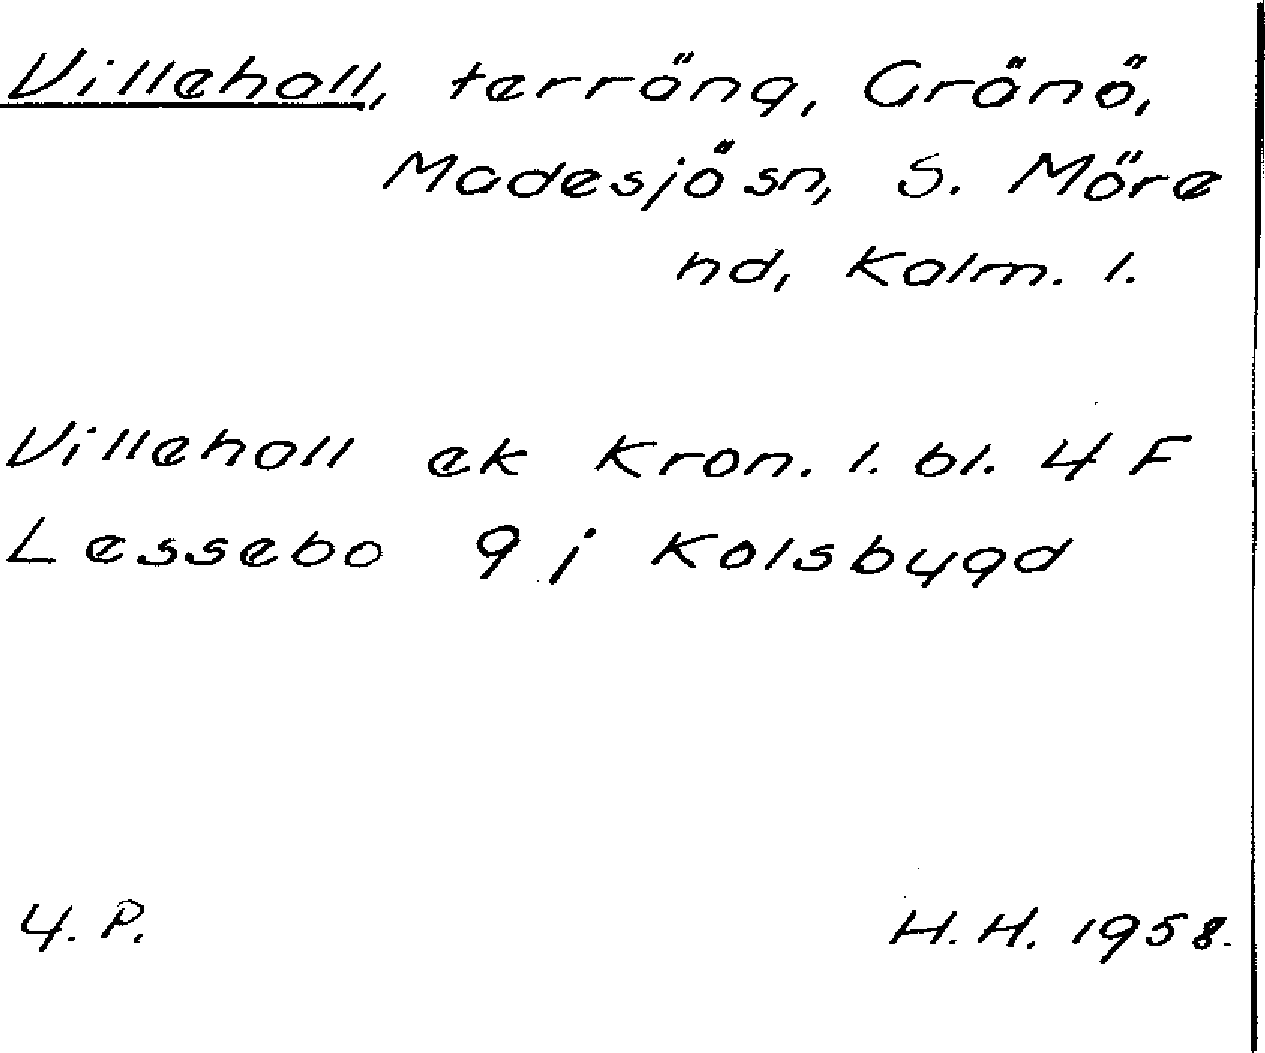 Villehall, terräng, Gränö,
Madesjö sn, S. Möre
hd, Kalm. l.
Villehall ek Kron. l. bl. 4 F
Lessebo 9 j Kalsbygd
4. P.
H.H. 1958.